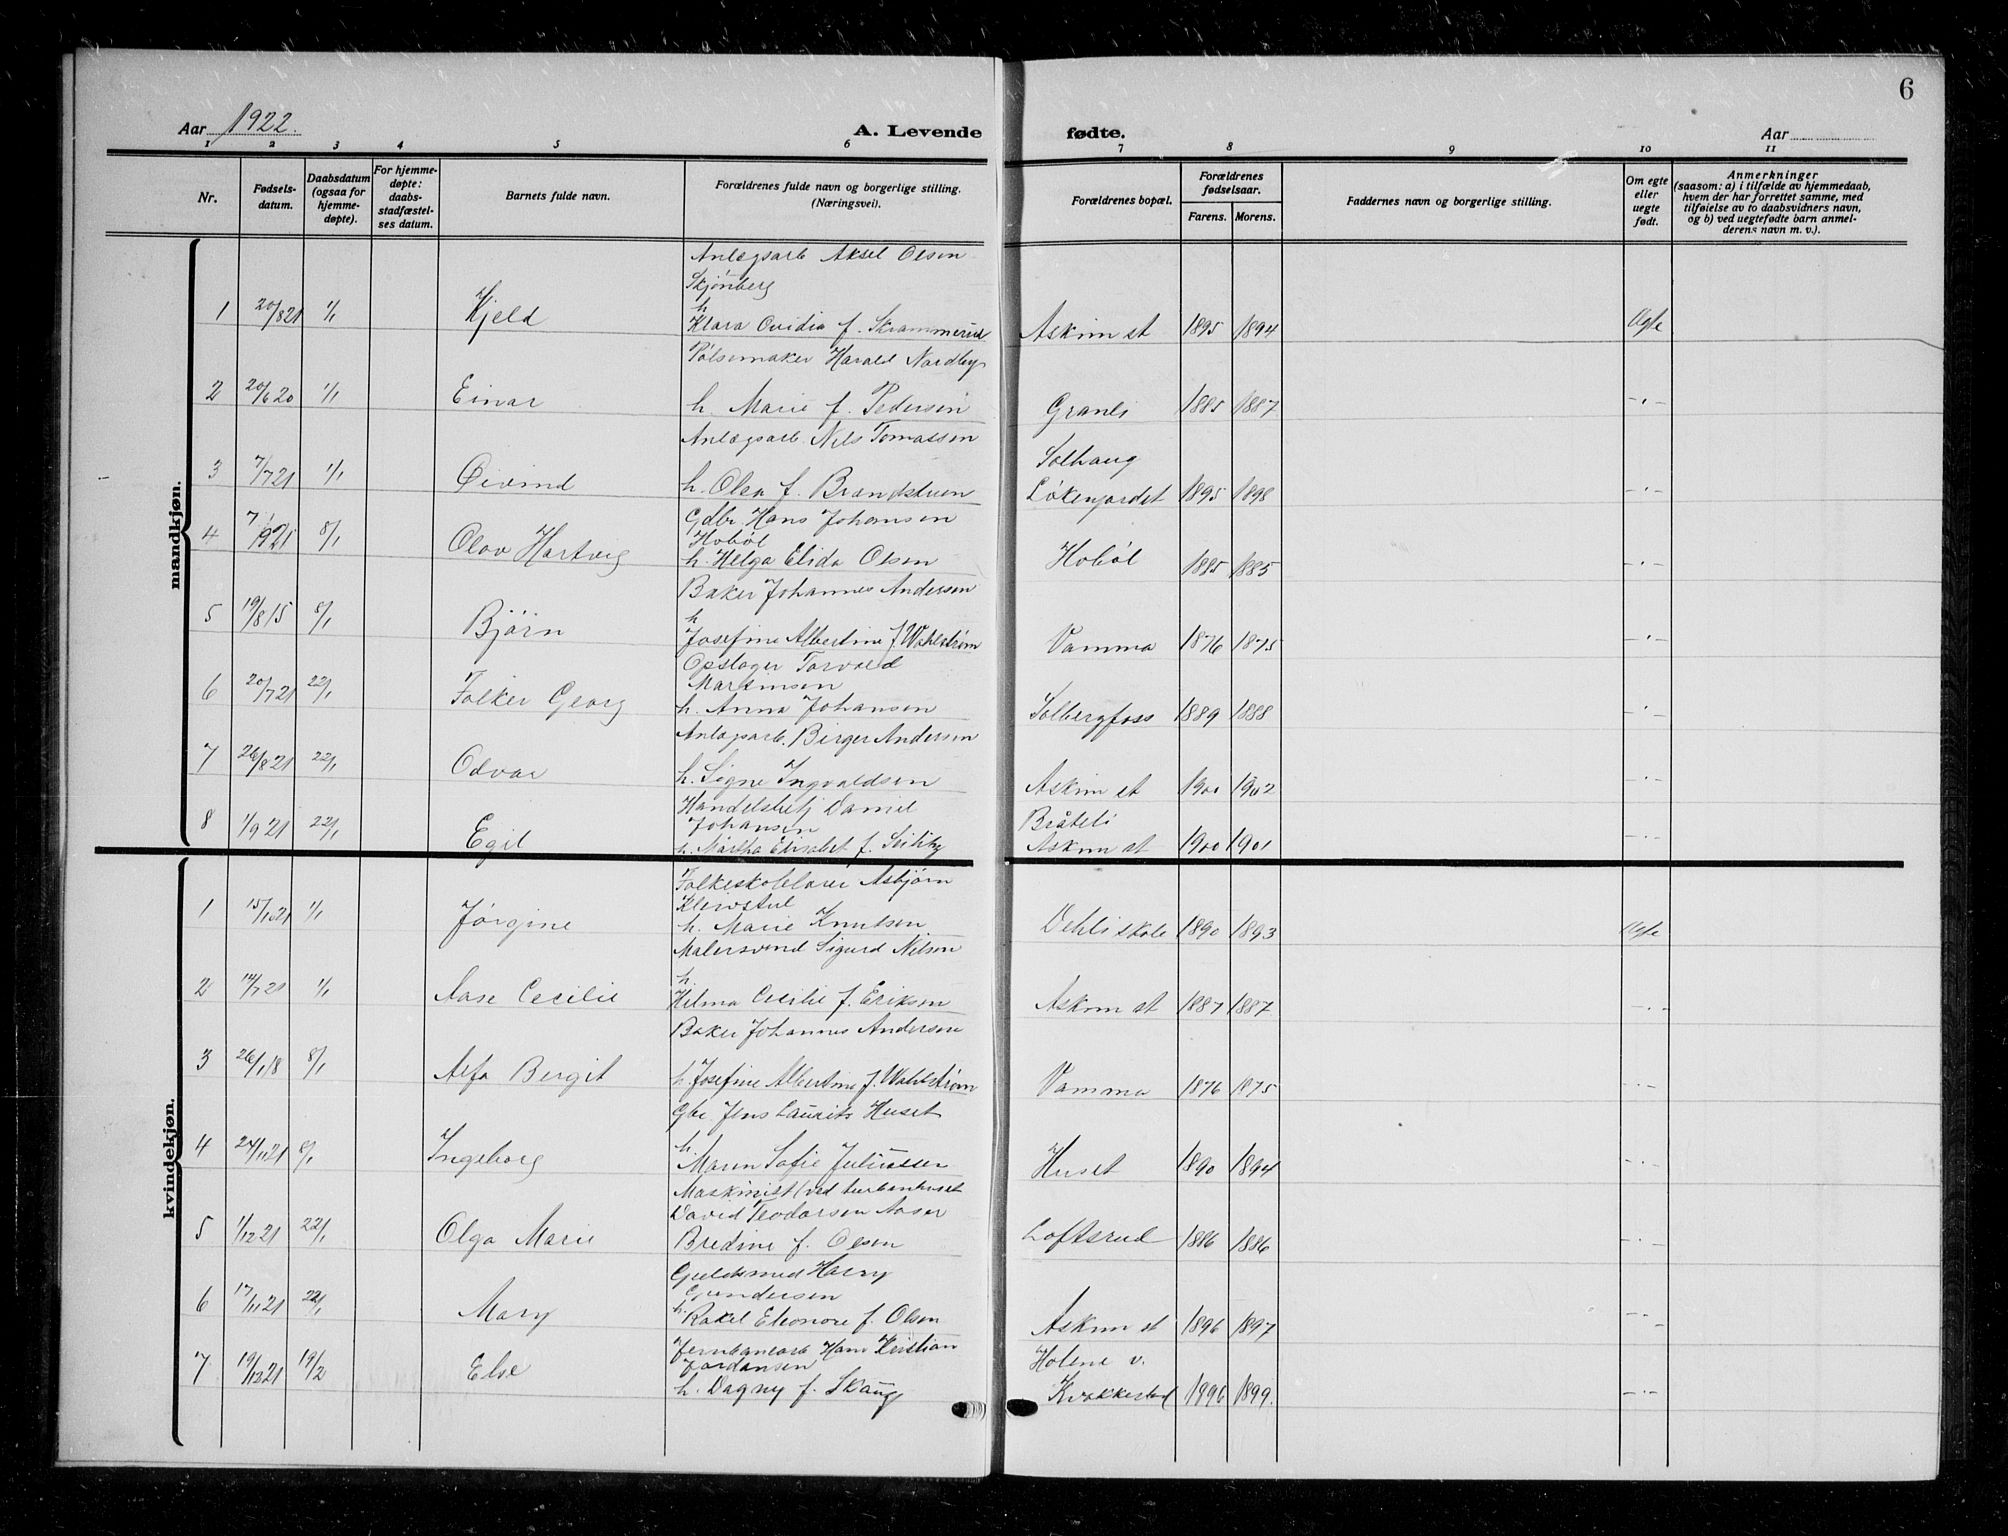 6
Aar 1922.
A. Levende
fødte.
Aar
1 2 3 4 5 6 7 8 9 10 11
Nr.
Fødsels-
datum.
Daabsdatum
(ogsaa for
hjemme-
døpte).
For hjemme-
døpte:
daabs-
stadfæstel-
ses datum.
Barnets fulde navn.
Forældrenes fulde navn og borgerlige stilling.
(Næringsvei).
Forældrenes bopæl.
Forældrenes
fødselsaar.
Farens. Morens.
Faddernes navn og borgerlige stilling.
Om egte
eller
uegte
født.
Anmerkninger
(saasom: a) i tilfælde av hjemmedaab,
hvem der har forrettet samme, med
tilføielse av to daabsvidners navn,
og b) ved uegtefødte barn anmel-
derens navn m. v.).
mandkjøn.
Anlægsarb Aksel Olsen
Skjønberg
h
1 20/8 21 1/1 Kjeld Klara Ovidia f. Skrammerud Askim st 1895 1894 Egte
Pølsemaker Harald Nordby
2 20/6 20 1/1 Einar h. Marie f. Pedersen Granli 1885 1887 -"-
Anlægsarb. Nils Tomassen
Solhaug
3 7/7 21 1/1 Øivind h. Olea f. Brandstuen Løkengardet 1895 1898 -"-
Gdbr Hans Johansen
Hobøl
4 7/9 21 8/1 Olav Hartvig h. Helga Elida Olsen Hobøl 1885 1885 -"-
Baker Johannes Andersen
h
5 19/8 15 8/1 Bjørn Josefine Albertine f. Wahlstrøm Vamma 1876 1875 -"-
Opslager Torvald
Martinsen
6 20/7 21 22/1 Folker Georg h. Anna Johansen Solbergfoss 1889 1888 -"-
Anlægsarb. Birger Andersen
7 26/8 21 22/1 Odvar h. Signe Ingvaldsen Askim st 1900 1902 -"-
Handelsbetj Daniel
Johansen
Bråteli
8 1/9 21 22/1 Egil h. Martha Elisabet f. Seilby Askim st 1900 1901 -"-
kvindekjøn.
Folkeskolelærer Asbjørn
Kleivstul
1 15/10 21 1/1 Jørgine h. Marie Knutsen Dehli skole 1890 1893 Egte
Malersvend Sigurd Nilsen
h.
2 14/7 21 1/1 Aase Cecilie Hilma Cecilie f. Eriksen Askim st 1887 1887 -"-
Baker Johannes Andersen
3 26/1 18 8/1 Alfa Bergit h. Josefine Albertine f. Wahlstrøm Vamma 1876 1875
Gbr Jens Laurits Huset
h.
4 24/11 21 8/1 Ingeborg Maren Sofie Juliussen Huset 1890 1894 -"-
Maskinist (ved turbinhuset
David Teodorsen Aaser
5 1/12 21 22/1 Olga Marie Bredine f. Olsen Loftsrud 1886 1886 -"-
Guldsmed Harry
Gundersen
6 17/11 21 22/1 Mary h. Rakel Eleonore f. Olsen Askim st 1896 1897 -"-
Jernbanearb Hans Kristian
Jordansen
Holene v.
7 19/12 21 19/2 Else h. Dagny f. Skaug Krokkestad 1896 1899. -"-